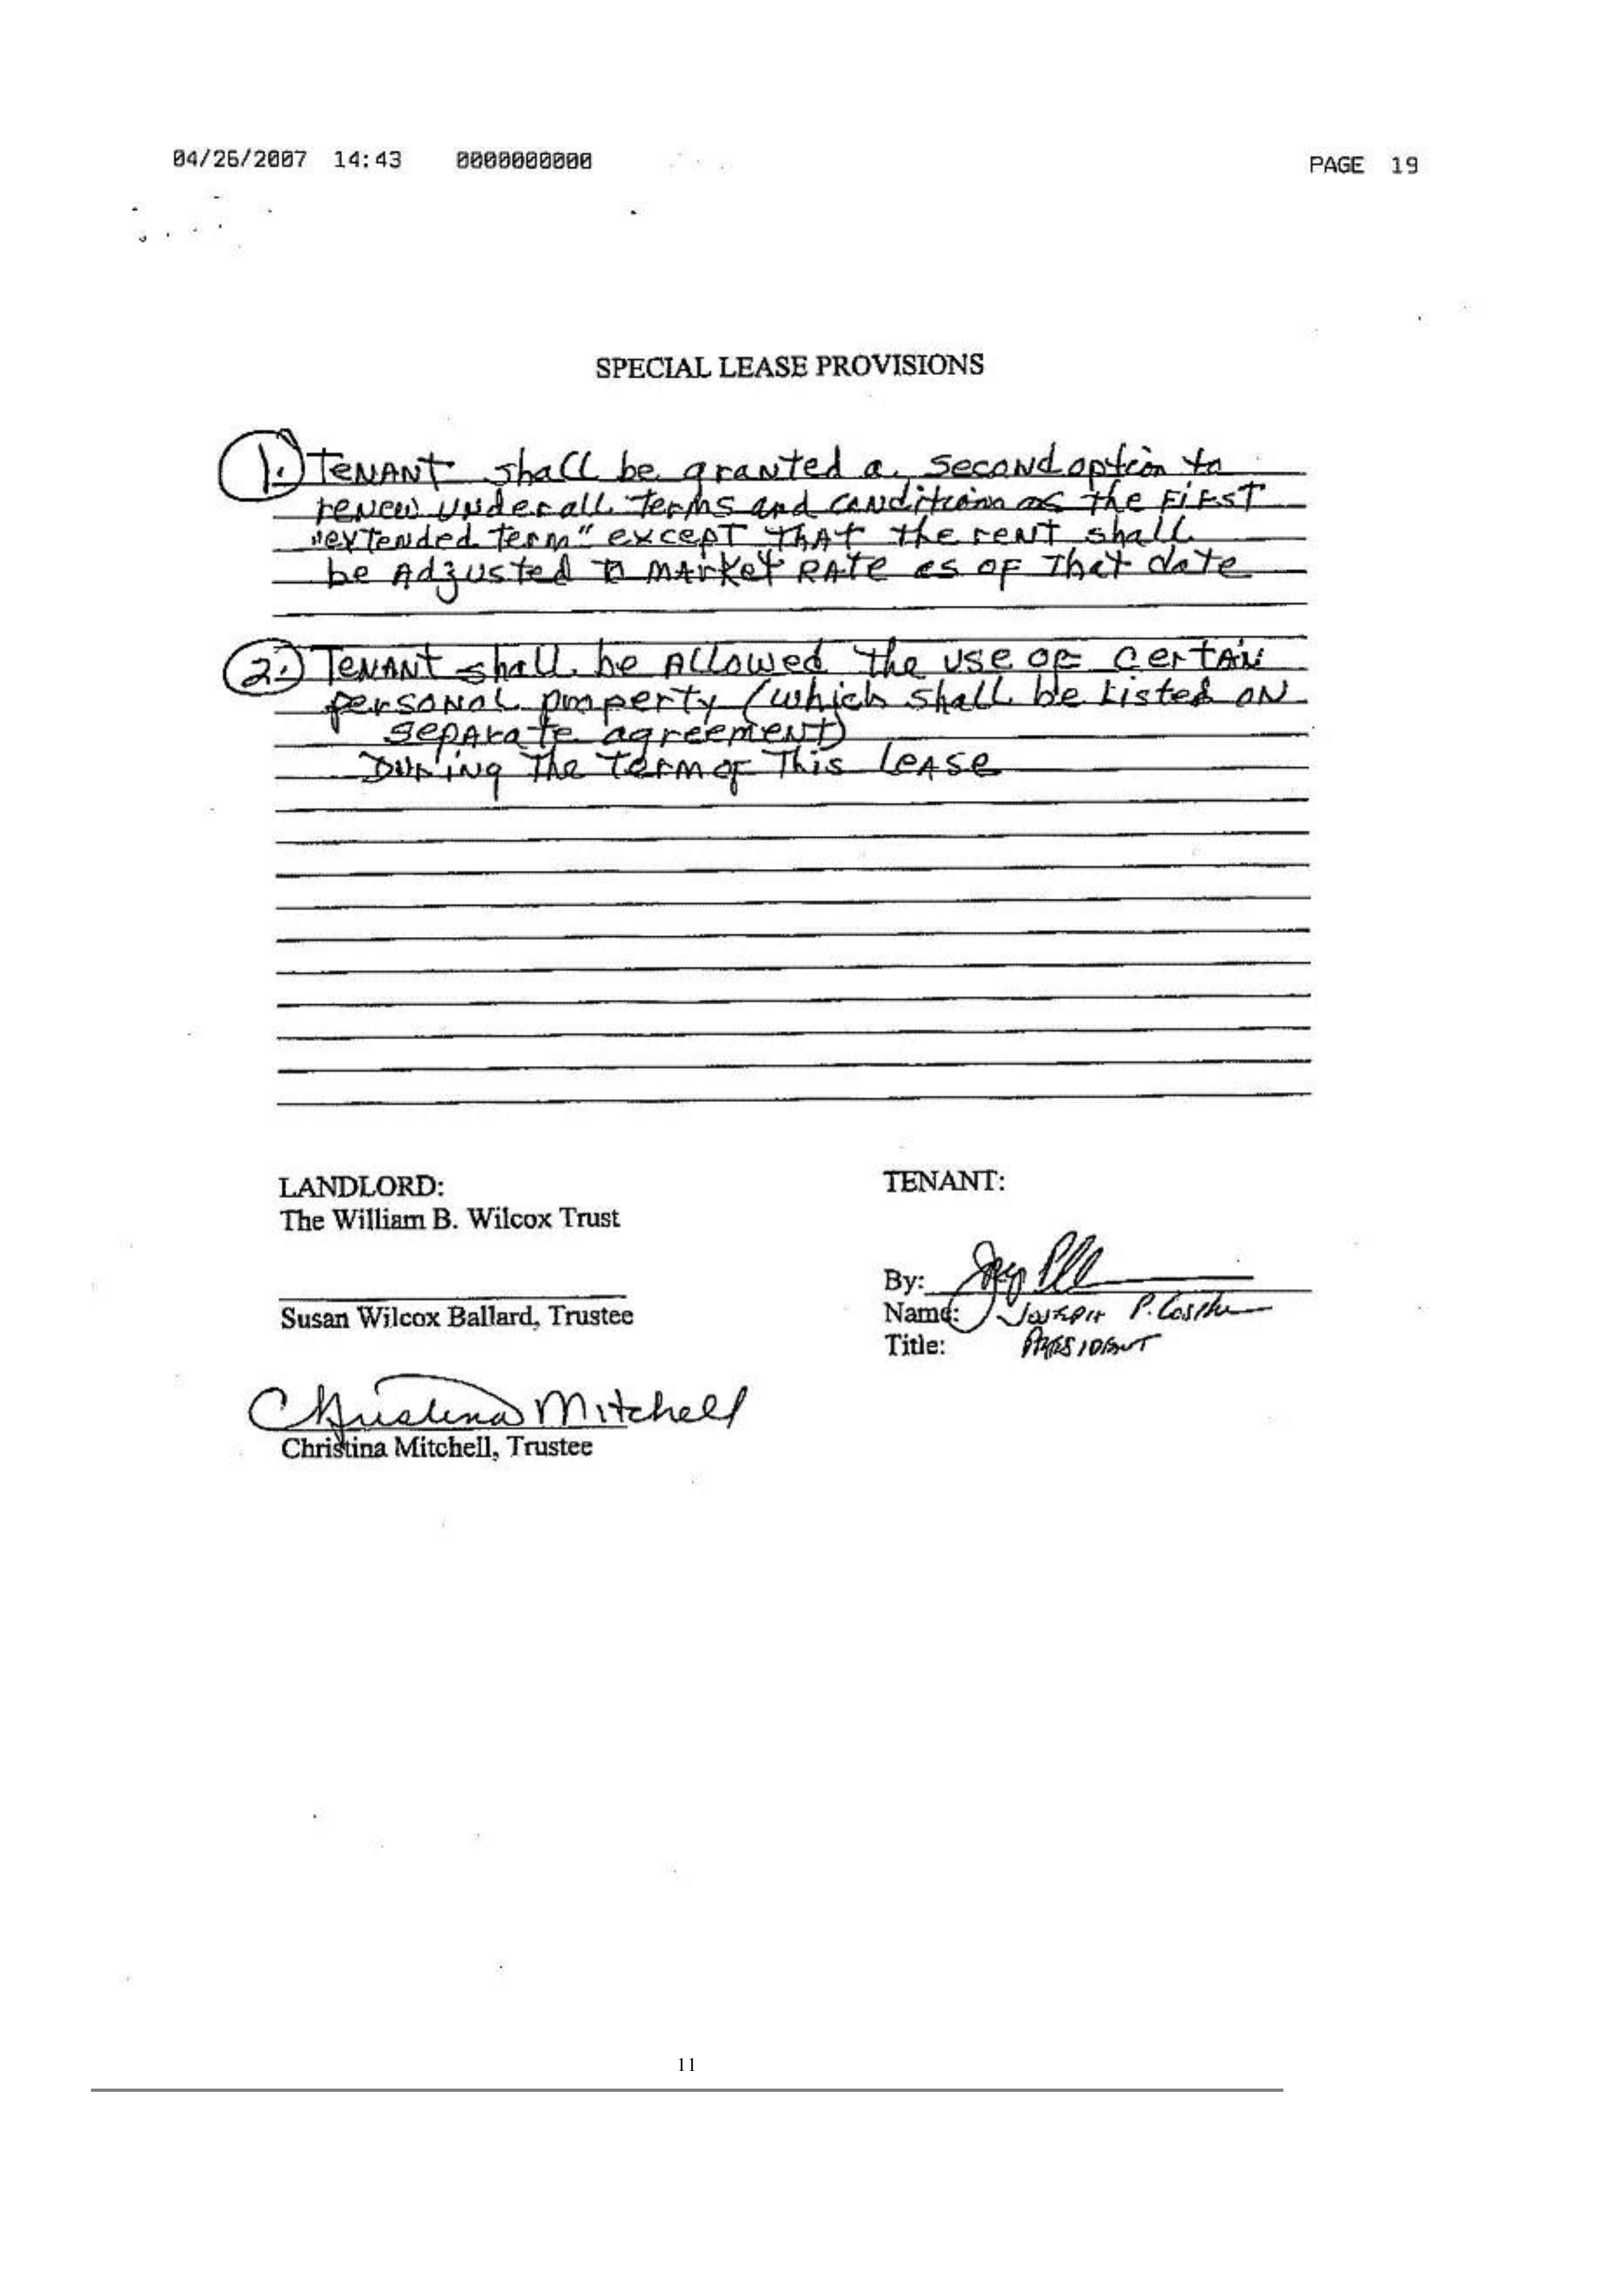 04/26/2007 14:43 0000000000 PAGE 19
SPECIAL LEASE PROVISIONS
1. TENANT shall be granted a second option to
renew under all terms and condition as the FIRST
"extended term" except THAT the rent shall
be Adjusted to MARKET RATE as of That date
2. TENANT shall be Allowed the use of certain
personal property (which shall be Listed on
separate agreement)
During The Term of This Lease
LANDLORD:
The William B. Wilcox Trust
TENANT:
By:
Susan Wilcox Ballard, Trustee
Name: Joseph P.
Title: PRESIDENT
Christina Mitchell
Christina Mitchell, Trustee
11